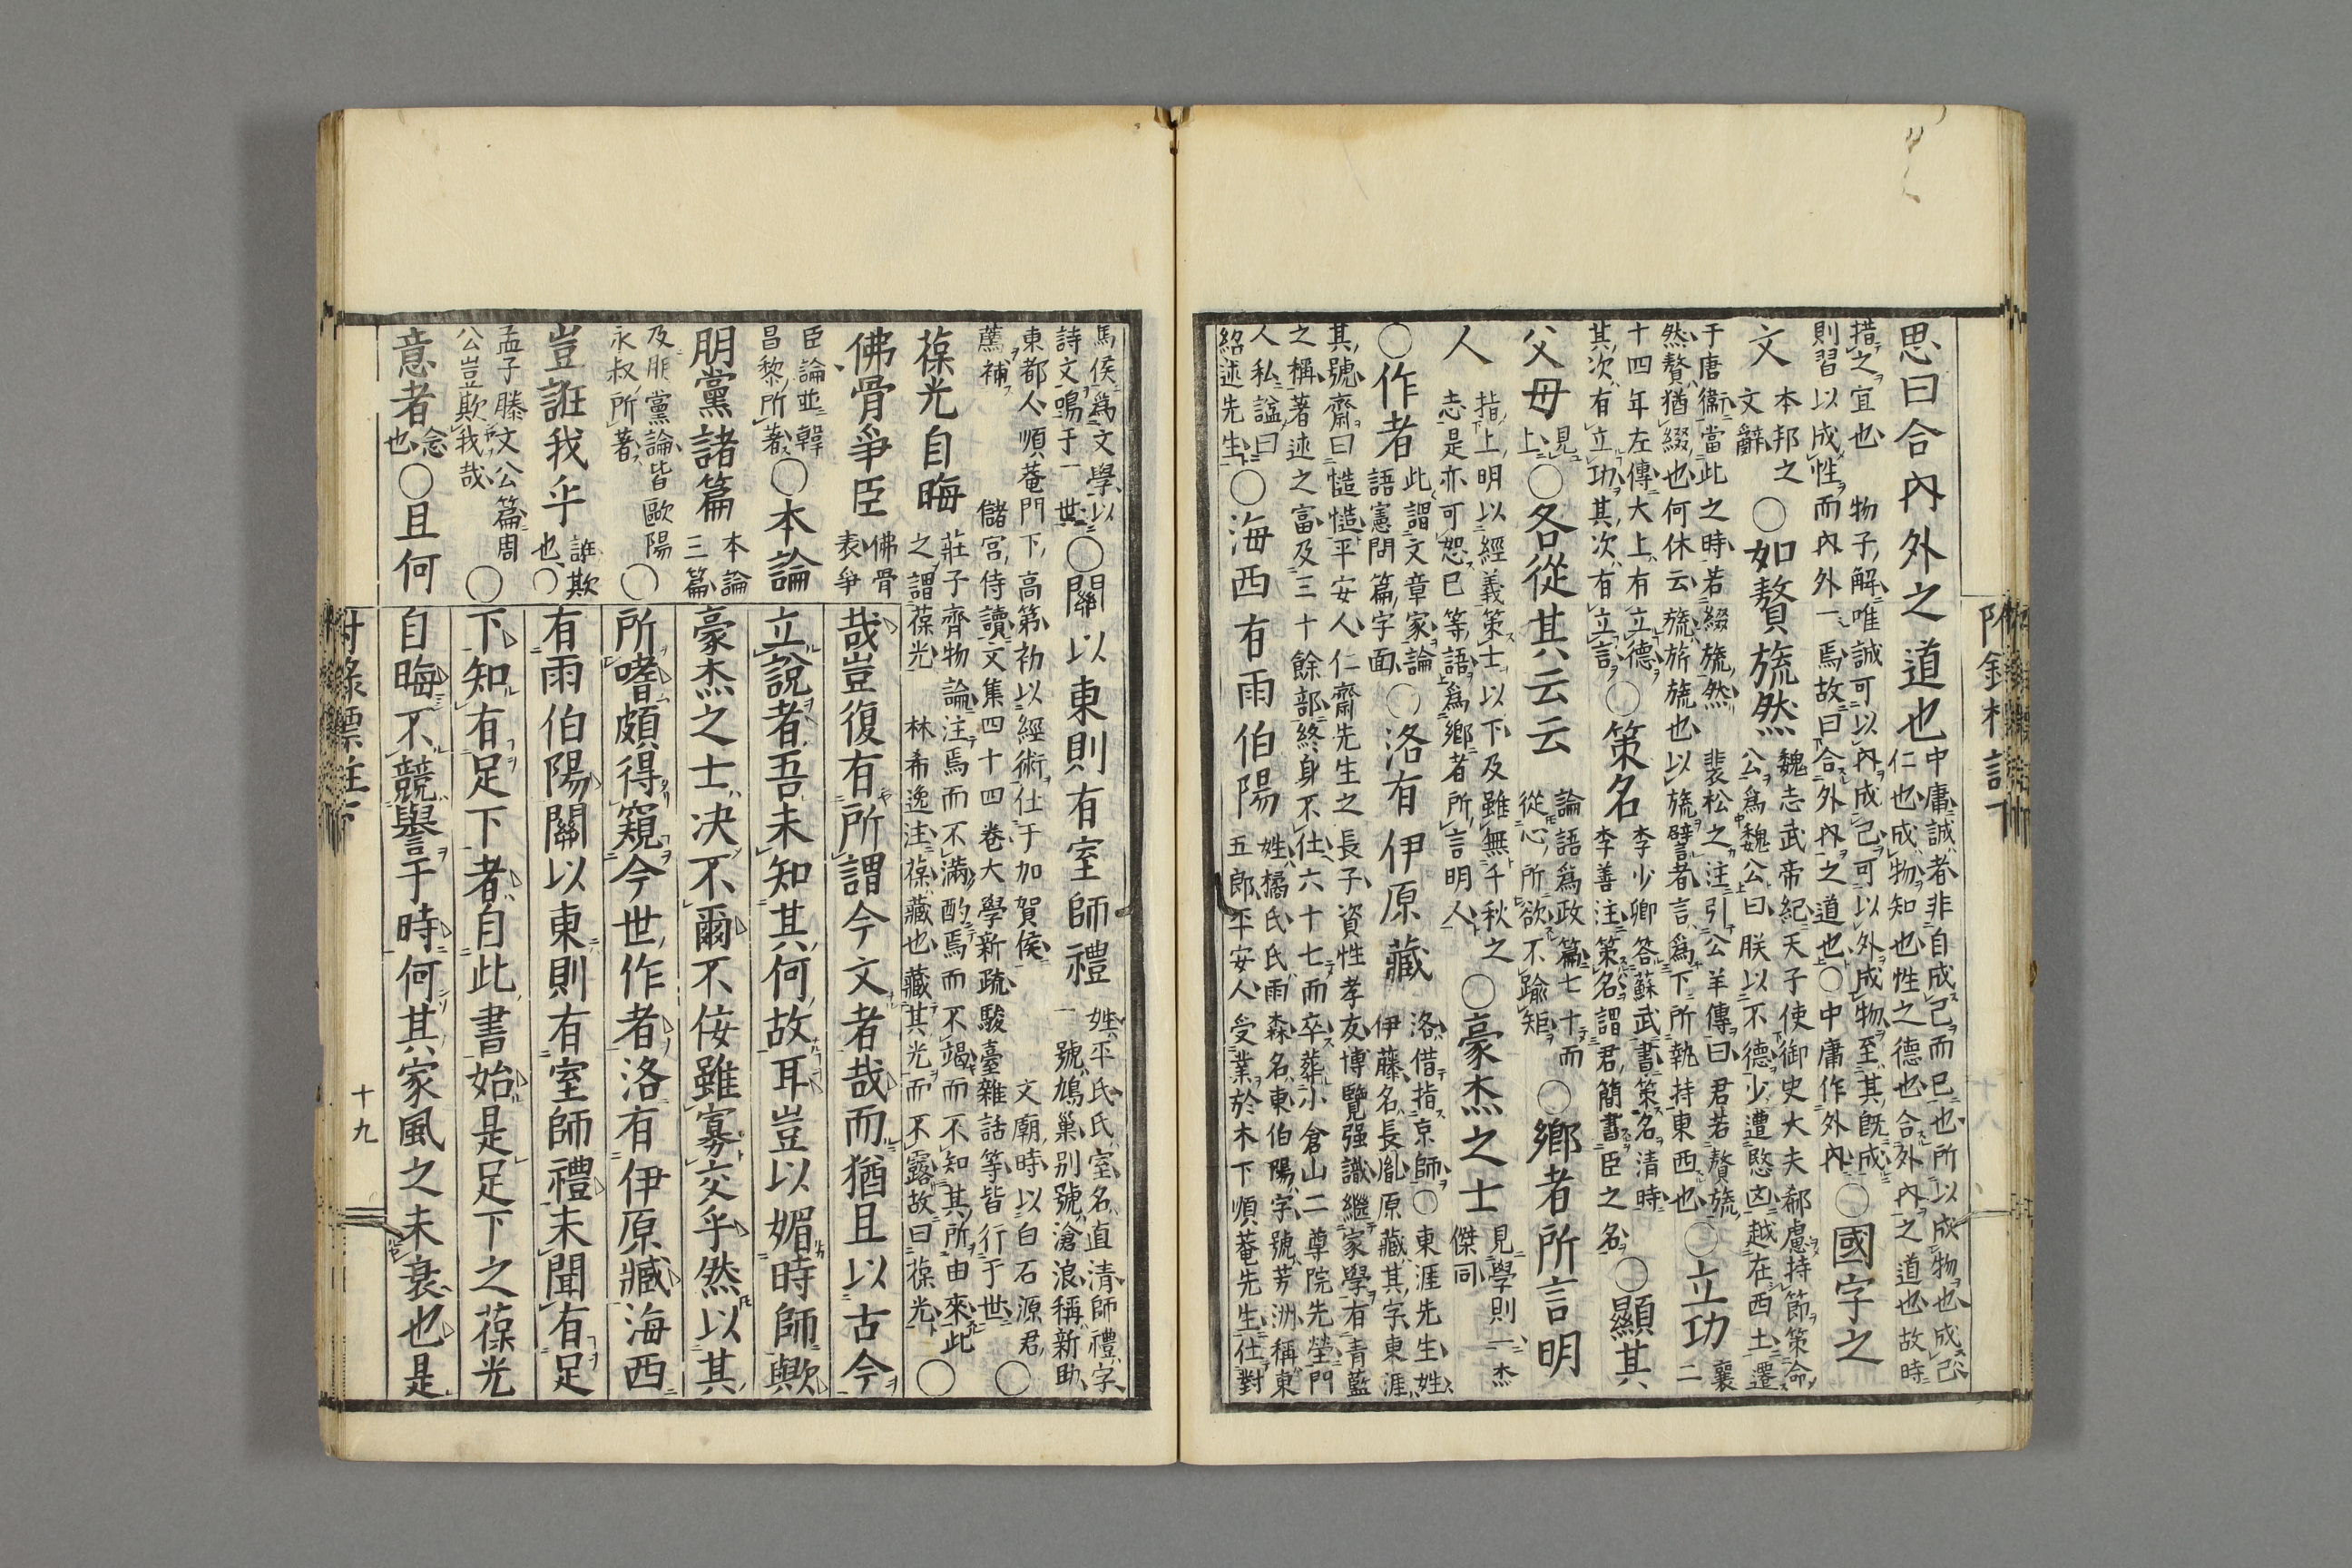 附録標註下
思曰合內外之道也
中庸誠者非自成己而已也所以成物也成己
仁也成物知也性之德也合外內之道也故時
措之宜也 物子解唯誠可以內成己可以外成物至其旣成
則習以成性而內外一焉故曰合外內之道也○中庸作外內
○國字之
文
本邦之
文辭
○如贅旒然
魏志武帝紀天子使御史大夫郗慮持節策命
公爲魏公曰朕以不德少遭愍凶越在西土遷
于唐衞當此之時若綴旒然 裴松之注引公羊傳曰君若贅旒
然贅猶綴也何休云旒旂旒也以旒譬者言爲下所執持東西也
○立功
襄二
十四年左傳大上有立德
其次有立功其次有立言
○策名
李少卿答蘇武書策名淸時
李善注策名謂君簡書臣之名
○顯其
父母
見上
○各從其云云
論語爲政篇七十而
從心所欲不踰矩
○鄕者所言明
人
指上明以經義策士以下及雖無千秋之
志是亦可恕已等語爲鄕者所言明人
○豪杰之士
見學則一杰
傑同
○作者
此謂文章家論
語憲問篇字面
○洛有伊原藏
洛借指京師○東涯先生姓
伊藤名長胤原藏其字東涯
其號齋曰慥慥平安人仁齋先生之長子資性孝友博覽强識繼家學有靑藍
之稱著述之富及三十餘部終身不仕六十七而卒葬小倉山二尊院先塋門
人私諡曰
紹述先生
○海西有雨伯陽
姓橘氏氏雨森名東伯陽字號芳洲稱東
五郎平安人受業於木下順菴先生仕對
馬侯爲文學以
詩文鳴于一世
○關以東則有室師禮
姓平氏氏室名直淸師禮字
一號鳩巢别號滄浪稱新助
東都人順菴門下高第初以經術仕于加賀侯 文廟時以白石源君
薦補 儲宮侍讀文集四十四卷大學新疏駿臺雜話等皆行于世
○
葆光自晦
莊子齊物論注焉而不滿酌焉而不竭而不知其所由來此
之謂葆光 林希逸注葆藏也藏其光而不露故曰葆光
○
佛骨爭臣
佛骨
表爭
臣論並韓
昌黎所著
○本論
朋黨諸篇
本論
三篇
及朋黨論皆歐陽
永叔所著
○
豈誑我乎
誑欺
也○
孟子滕文公篇周
公豈欺我哉
○
意者
念
也
○且何
哉豈復有所謂今文者哉而猶且以古今
立說者吾未知其何故耳豈以媚時師歟
豪杰之士决不爾不侫雖寡交乎然以其
所嗜頗得窺今世作者洛有伊原藏海西
有雨伯陽關以東則有室師禮未聞有足
下知有足下者自此書始是足下之葆光
自晦不競譽于時何其家風之未衰也是
附錄標註下
十九